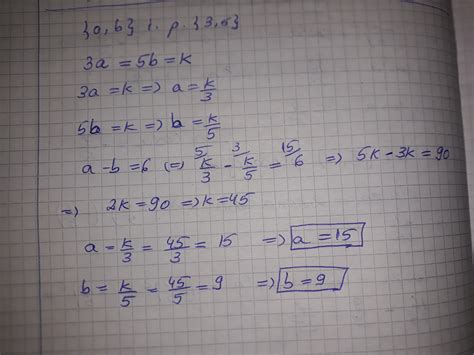 {a, b} i. p. {3, 5}
3a = 5b = k
3a = k => a = k/3
5b = k => b = k/5
a - b = 6 (=) 5) k/3 - 3) k/5 = 15) 6 => 5k - 3k = 90
=> 2k = 90 => k = 45
a = k/3 = 45/3 = 15 => a = 15
b = k/5 = 45/5 = 9 => b = 9